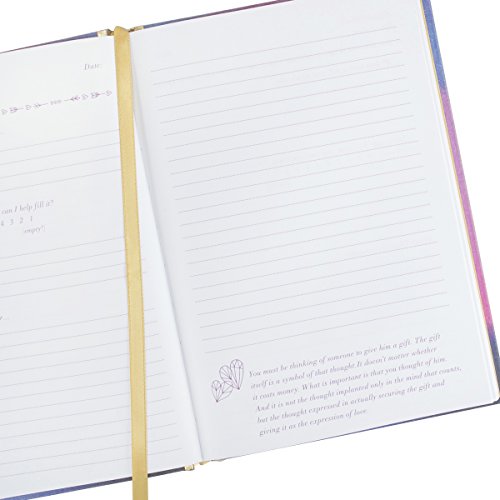 Date:
can I help fill it?
4 3 2 1
(empty)
You must be thinking of someone to give him a gift. The gift
itself is a symbol of that thought. It doesn't matter whether
it costs money. What is important is that you thought of him.
And it is not the thought implanted only in the mind that counts,
but the thought expressed in actually securing the gift and
giving it as the expression of love.